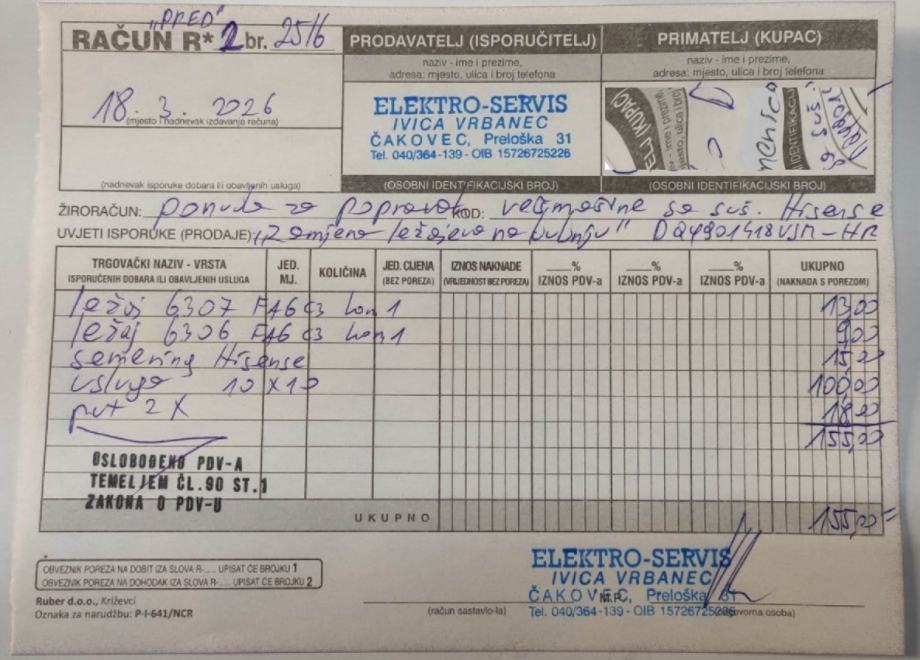 "PRED"
RAČUN R* 2 br. 25/6
18. 3. 2026
(mjesto i nadnevak izdavanja računa)
(nadnevak isporuke dobara ili obavljenih usluga)
PRODAVATELJ (ISPORUČITELJ)
naziv - ime i prezime,
adresa: mjesto, ulica i broj telefona
ELEKTRO-SERVIS
IVICA VRBANEC
ČAKOVEC, Preloška 31
Tel. 040/364-139 - OIB 15726725226
(OSOBNI IDENTIFIKACIJSKI BROJ)
PRIMATELJ (KUPAC)
naziv - ime i prezime,
adresa: mjesto, ulica i broj telefona
(OSOBNI IDENTIFIKACIJSKI BROJ)
ŽIRORAČUN: ponuda za popravak KOD: vešmašine sa suš. Hisense
UVJETI ISPORUKE (PRODAJE): "Zamjena ležajeva na bubnju" DQ4901418VSM-HR
TRGOVAČKI NAZIV - VRSTA ISPORUČENIH DOBARA ILI OBAVLJENIH USLUGA JED. MJ. KOLIČINA JED. CIJENA (BEZ POREZA) IZNOS NAKNADE (VRIJEDNOST BEZ POREZA) __% IZNOS PDV-a __% IZNOS PDV-a __% IZNOS PDV-a UKUPNO (NAKNADA S POREZOM)
ležaj 6307 FAG C3 kom 1 13,00
ležaj 6306 FAG C3 kom 1 9,00
semering Hisense 15,00
usluga 10 x 10 100,00
put 2 X 18,00
155,00
OSLOBOĐENO PDV-A
TEMELJEM ČL.90 ST.1
ZAKONA O PDV-U
UKUPNO 155,00=
OBVEZNIK POREZA NA DOBIT IZA SLOVA R-..... UPISAT ĆE BROJKU 1
OBVEZNIK POREZA NA DOHODAK IZA SLOVA R-..... UPISAT ĆE BROJKU 2
Ruber d.o.o., Križevci
Oznaka za narudžbu: P-I-641/NCR
(račun sastavio-la)
M.P.
ELEKTRO-SERVIS
IVICA VRBANEC
ČAKOVEC, Preloška 31
Tel. 040/364-139 - OIB 15726725226
(odgovorna osoba)